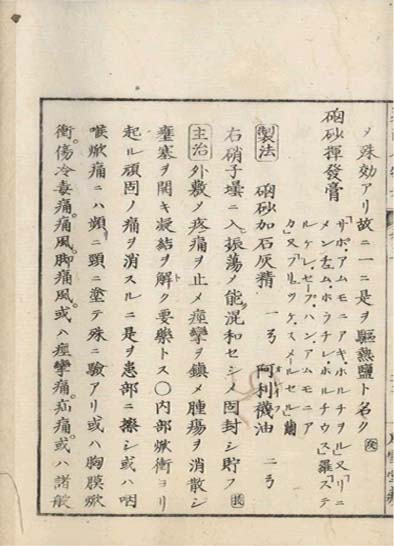 ヲ殊効アリ故ニ一ニ是ヲ驅熱鹽ト名ク
硇砂揮發膏
「サポ、アムモニアキ、ホルチヲル」又「リニ
メンチュム、ホラチレ、ホルチウス」羅「ステ
ルケレ、セープ、ハン、アムモニア
カ」又「フリュクケ、スメールセル」蘭
製法 硇砂加石灰精 一ゥ 阿利襪油 二ゥ
右硝子壜ニ入振蕩メ能混和セシメ固封シ貯フ
主治 外敷メ疼痛ヲ止メ痙攣ヲ鎮メ腫瘍ヲ消散シ
壅塞ヲ開キ凝結ヲ解ク要藥トス〇内部焮衝ヨリ
起ル頑固ノ痛ヲ消スルニ是ヲ患部ニ擦シ或ハ咽
喉焮痛ニハ頬ニ頸ニ塗テ殊ニ驗アリ或ハ胸膜焮
衝。傷冷毒痛。痛風。脚痛風。或ハ痙攣痛。疝痛。或ハ諸般